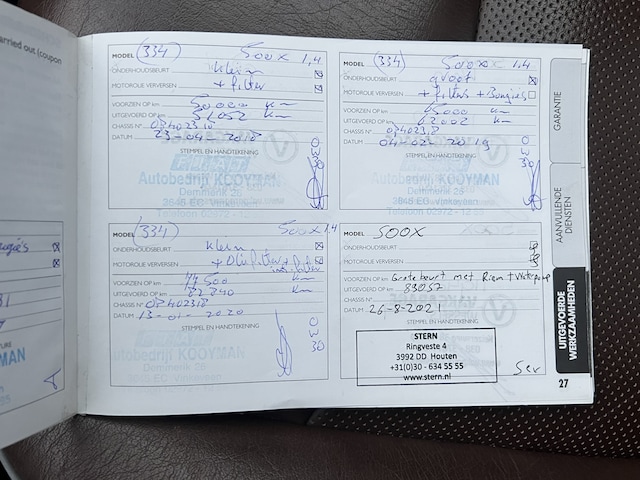 arried out (coupon
MODEL (334) 500X 1,4
ONDERHOUDSBEURT klein
MOTOROLIE VERVERSEN + filter
VOORZIEN OP km 50000 km
UITGEVOERD OP km 51052 km
CHASSIS N° 0P402318
DATUM 23-04-2018
STEMPEL EN HANDTEKENING
Autobedrijf KOOYMAN
Demmerik 26
3645 EC Vinkeveen
Telefoon 02972 - 12
MODEL (334) 500X 1.4
ONDERHOUDSBEURT groot
MOTOROLIE VERVERSEN + filters + Bougies
VOORZIEN OP km 65000 km
UITGEVOERD OP km 62002 km
CHASSIS N° 0P402318
DATUM 04-02-2019
STEMPEL EN HANDTEKENING
03
30
Autobedrijf KOOYMAN
Demmerik 26
3645 EC Vinkeveen
Telefoon 02972 - 12
MODEL (334) 500X 1,4
ONDERHOUDSBEURT klein
MOTOROLIE VERVERSEN + Oliefilter
VOORZIEN OP km 77500 km
UITGEVOERD OP km km
CHASSIS N° 0P402318
DATUM 13-01-2020
STEMPEL EN HANDTEKENING
03
30
Autobedrijf KOOYMAN
Demmerik 26
MODEL 500X
ONDERHOUDSBEURT
MOTOROLIE VERVERSEN
VOORZIEN OP km Grote beurt met Riem + Waterpomp
UITGEVOERD OP km 83057
CHASSIS N°
DATUM 26-8-2021
STEMPEL EN HANDTEKENING
STERN
Ringveste 4
3992 DD Houten
+31(0)30 - 634 55 55
www.stern.nl
27
GARANTIE
AANVULLENDE
DIENSTEN
UITGEVOERDE
WERKZAAMHEDEN
YMAN